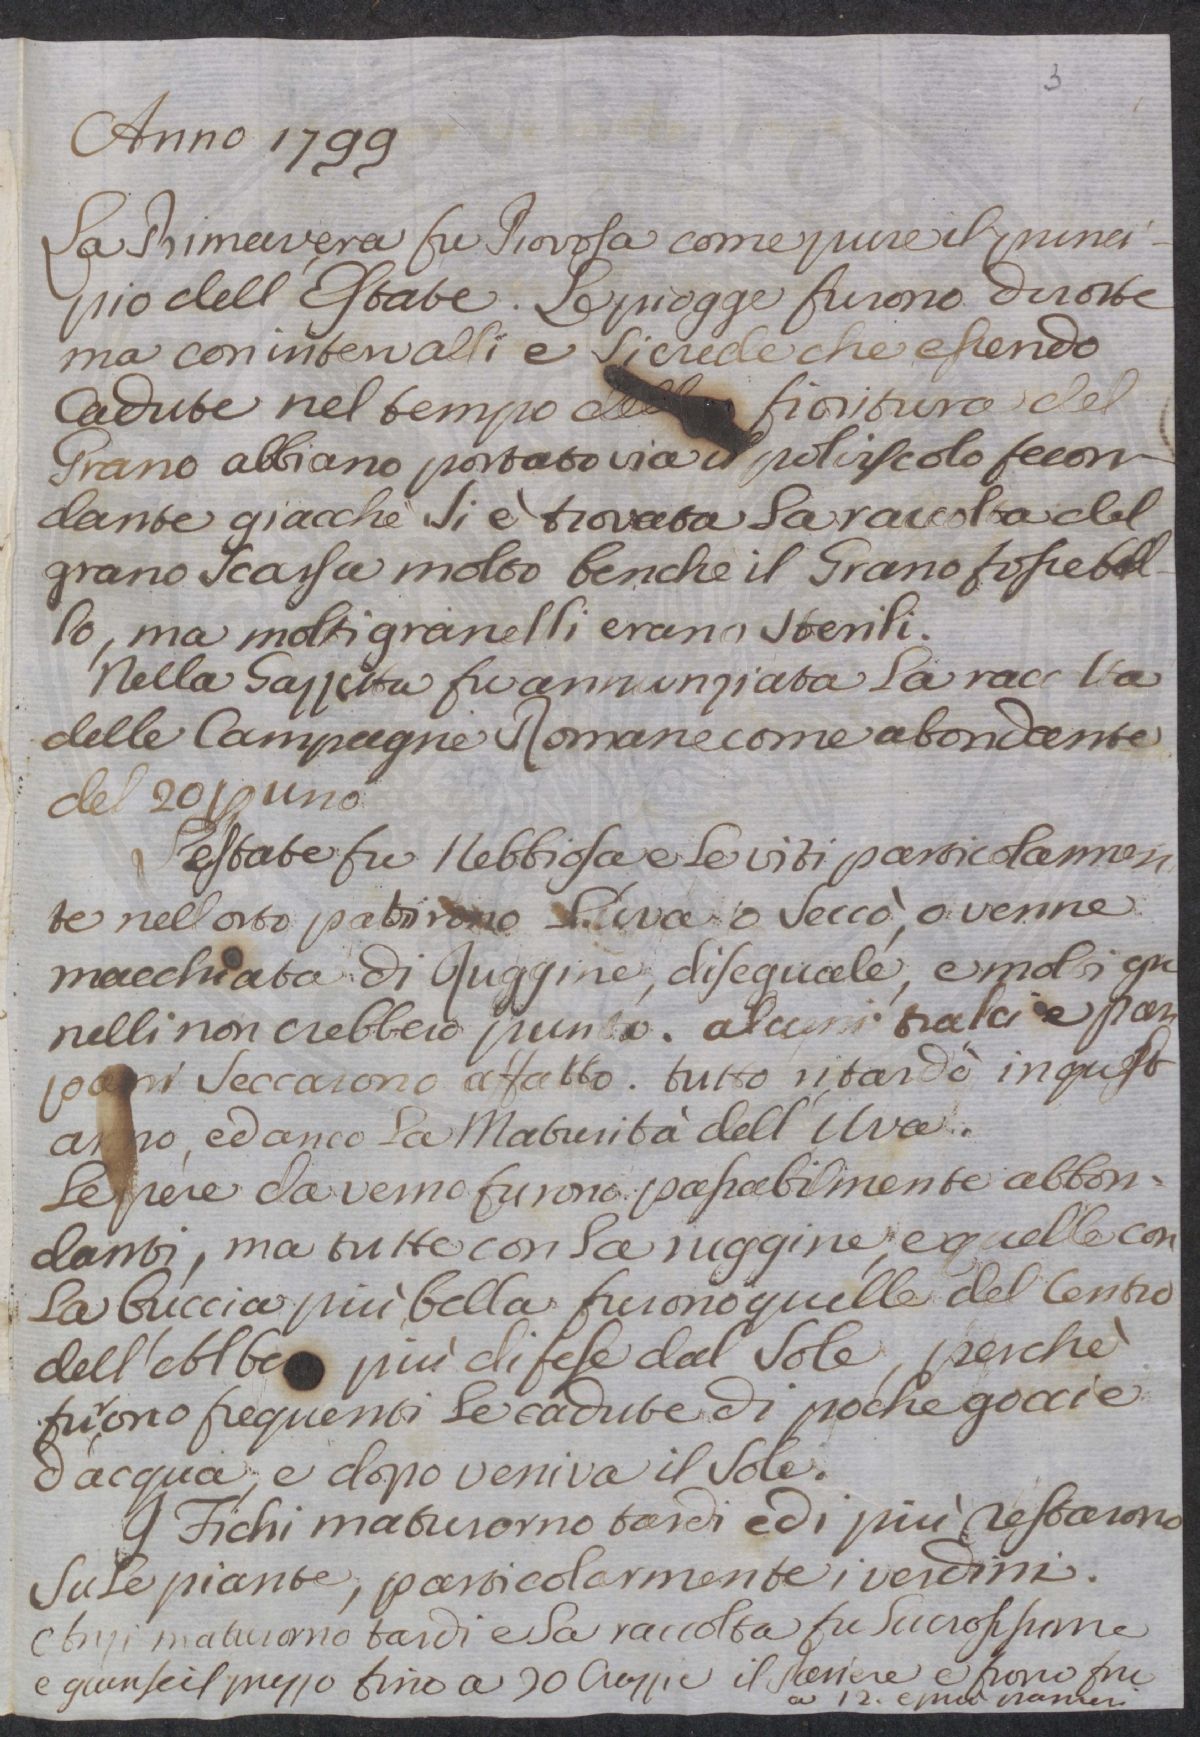 3
Anno 1799
La Primavera fu Piovosa come pure il princi-
pio dell' Estate. Le piogge furono dirotte
ma con intervalli e si crede che essendo
cadute nel tempo della fioritura del
Grano abbiano portato via il polviscolo fecon-
dante giacchè si è trovata la raccolta del
grano scarsa molto benche il Grano fosse bel-
lo, ma molti granelli erano sterili.
Nella Gazzetta fu annunziata la raccolta
delle Campagne Romane come abondante
del 20 p uno
L'estate fu Nebbiosa e le viti particolarmen
te nell orto patirono L'uva o seccò, o venne
macchiata di Ruggine, diseguale, e molti gra
nelli non crebbero punto. alcuni tralci e pam
pani seccarono affatto. tutto ritardò in quest
anno, ed anco la Maturità dell' Uva.
Le pere da verno furono passabilmente abbon-
danti, ma tutte con la ruggine, e quelle con
la buccia più bella furono quelle del Centro
dell' Albero più difese dal Sole, perchè
furono frequenti le cadute di poche goccie
d'acqua, e dopo veniva il Sole.
I Fichi maturorno tardi e di più restarono
su le piante, particolarmente i verdini.
maturorno tardi e la raccolta fu
e giunse il prezzo fino a 20 Crazzie il e
a 12. e più